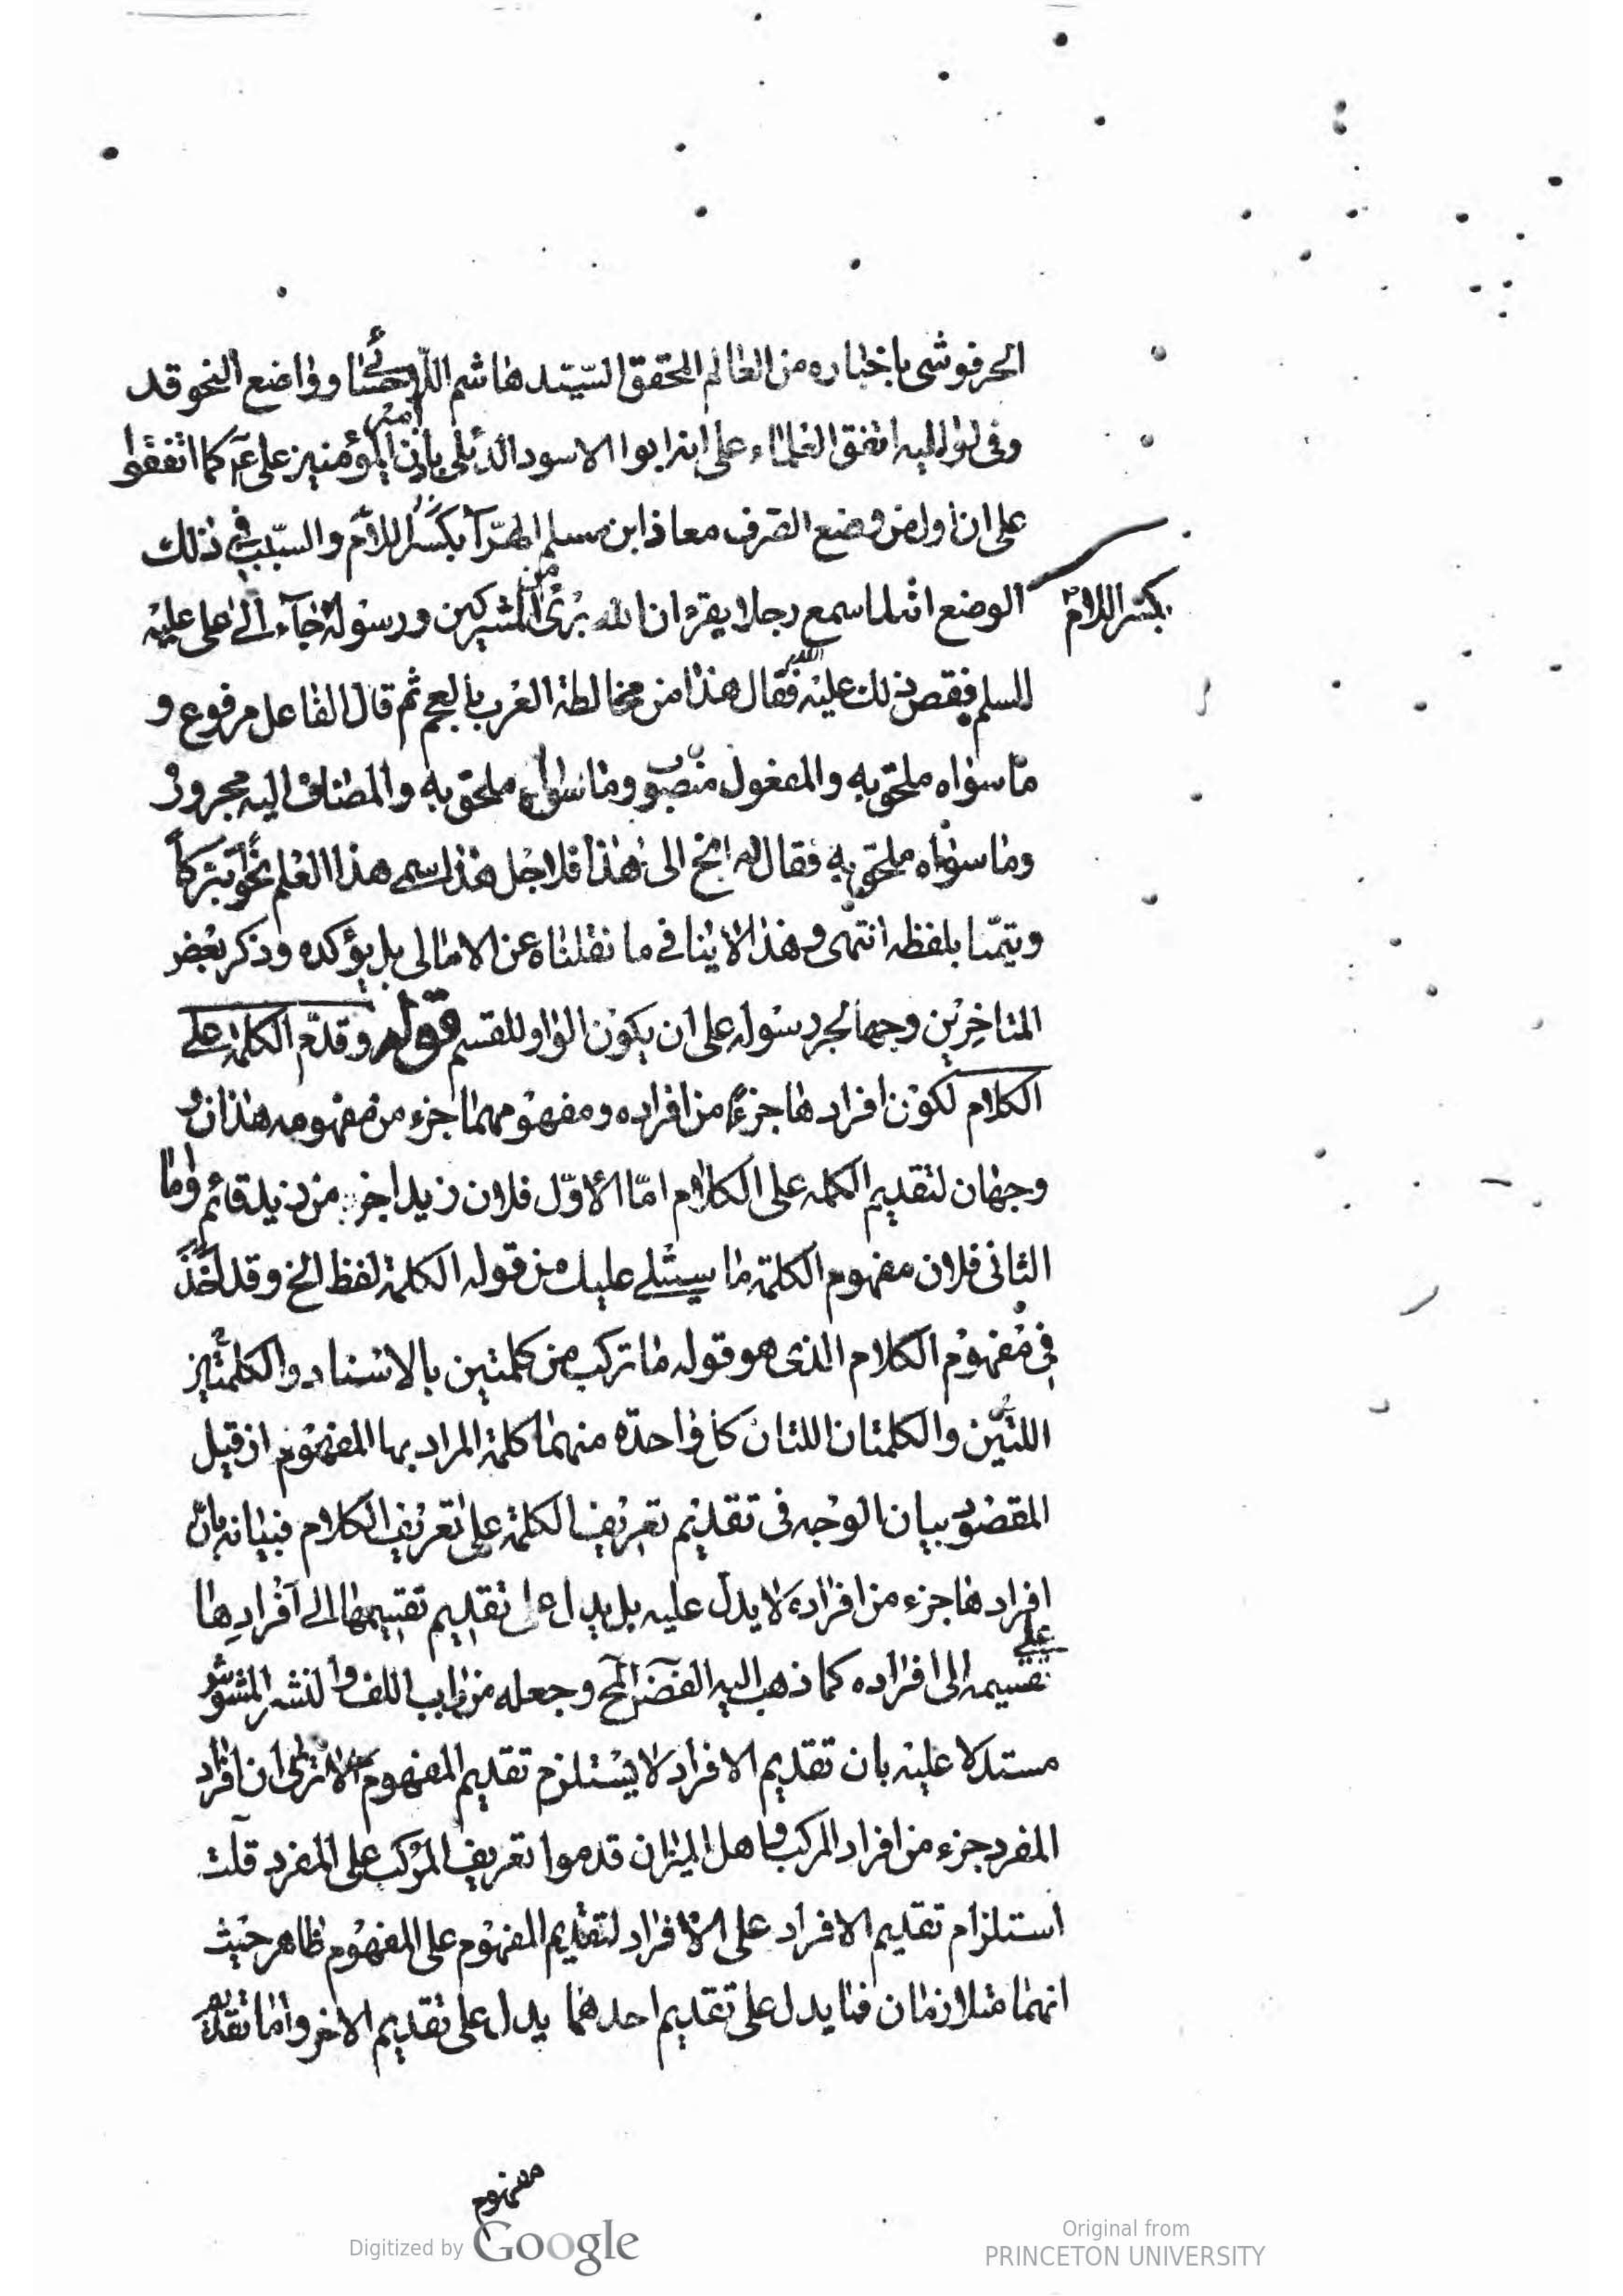 الحرفوشى باخباره من العالم المحقق السيّد هاشم الاحسائى وواضع النحو قد
وفى لواليه اتفق العلماء على انه ابوا الاسود الدئلى باذن امير المؤمنين على ع كما اتفقوا
على ان اول من وضع الصرف معاذ ابن مسلم الهرّآ بكسر اللام والسّبب فى ذلك
بكسر اللام
الوضع انه لما سمع رجلا يقرء ان الله برىء من المشركين ورسوله جآء الى على عليه
السلم فقص ذلك عليه فقال هذا من مخالطة العرب بالعجم ثم قال الفاعل مرفوع و
ما سواه ملحق به والمفعول منصوب وما سواه ملحق به والمضاف اليه مجرور
وما سواه ملحق به فقال له انح الى هذا فلاجل هذا سمى هذا العلم نحوا تبركاً
ويتمّنا بلفظه انتهى وهذا لا ينافى ما نقلناه عن الامالى بل يؤكده وذكر بعض
المتاخرين وجها لجر رسوله على ان يكون الواو للقسم قوله وقدّم الكلمة على
الكلام لكون افرادها جزءً من افراده ومفهومهما جزء من مفهومه هذان و
وجهان لتقديم الكلمه على الكلام امّا الاوّل فلان زيدا جزء من زيد قائم واما
الثانى فلان مفهوم الكلمة ما سيتلى عليك من قوله الكلمة لفظ الخ وقد اخذ
فى مفهوم الكلام الذى هو قوله ما تركب من كلمتين بالاسناد والكلمتين
اللتين والكلمتان اللتان كل واحدة منهما كلمة المراد بها المفهوم از قيل
المقصود بيان الوجه فى تقديم تعريف الكلمة على تعريف الكلام فبيانه بان
افرادها جزء من افراده لا يدل عليه بل يدل على تقديم تقسيمها الى افرادها
على
تقسيمه الى افراده كما ذهب اليه الفضل المح وجعله من باب اللف والنشر المشوش
مستدلا عليه بان تقديم الافراد لا يستلزم تقديم المفهوم الا ترى ان افراد
المفرد جزء من افراد المركب واهل الميزان قدموا تعريف المركب على المفرد قلت
استلزام تقديم الافراد على الافراد لتقديم المفهوم على المفهوم ظاهر حيث
انهما متلازمان فما يدل على تقديم احدهما يدل على تقديم الاخر واما تقديم
مفهوم
Digitized by Google
Original from
PRINCETON UNIVERSITY